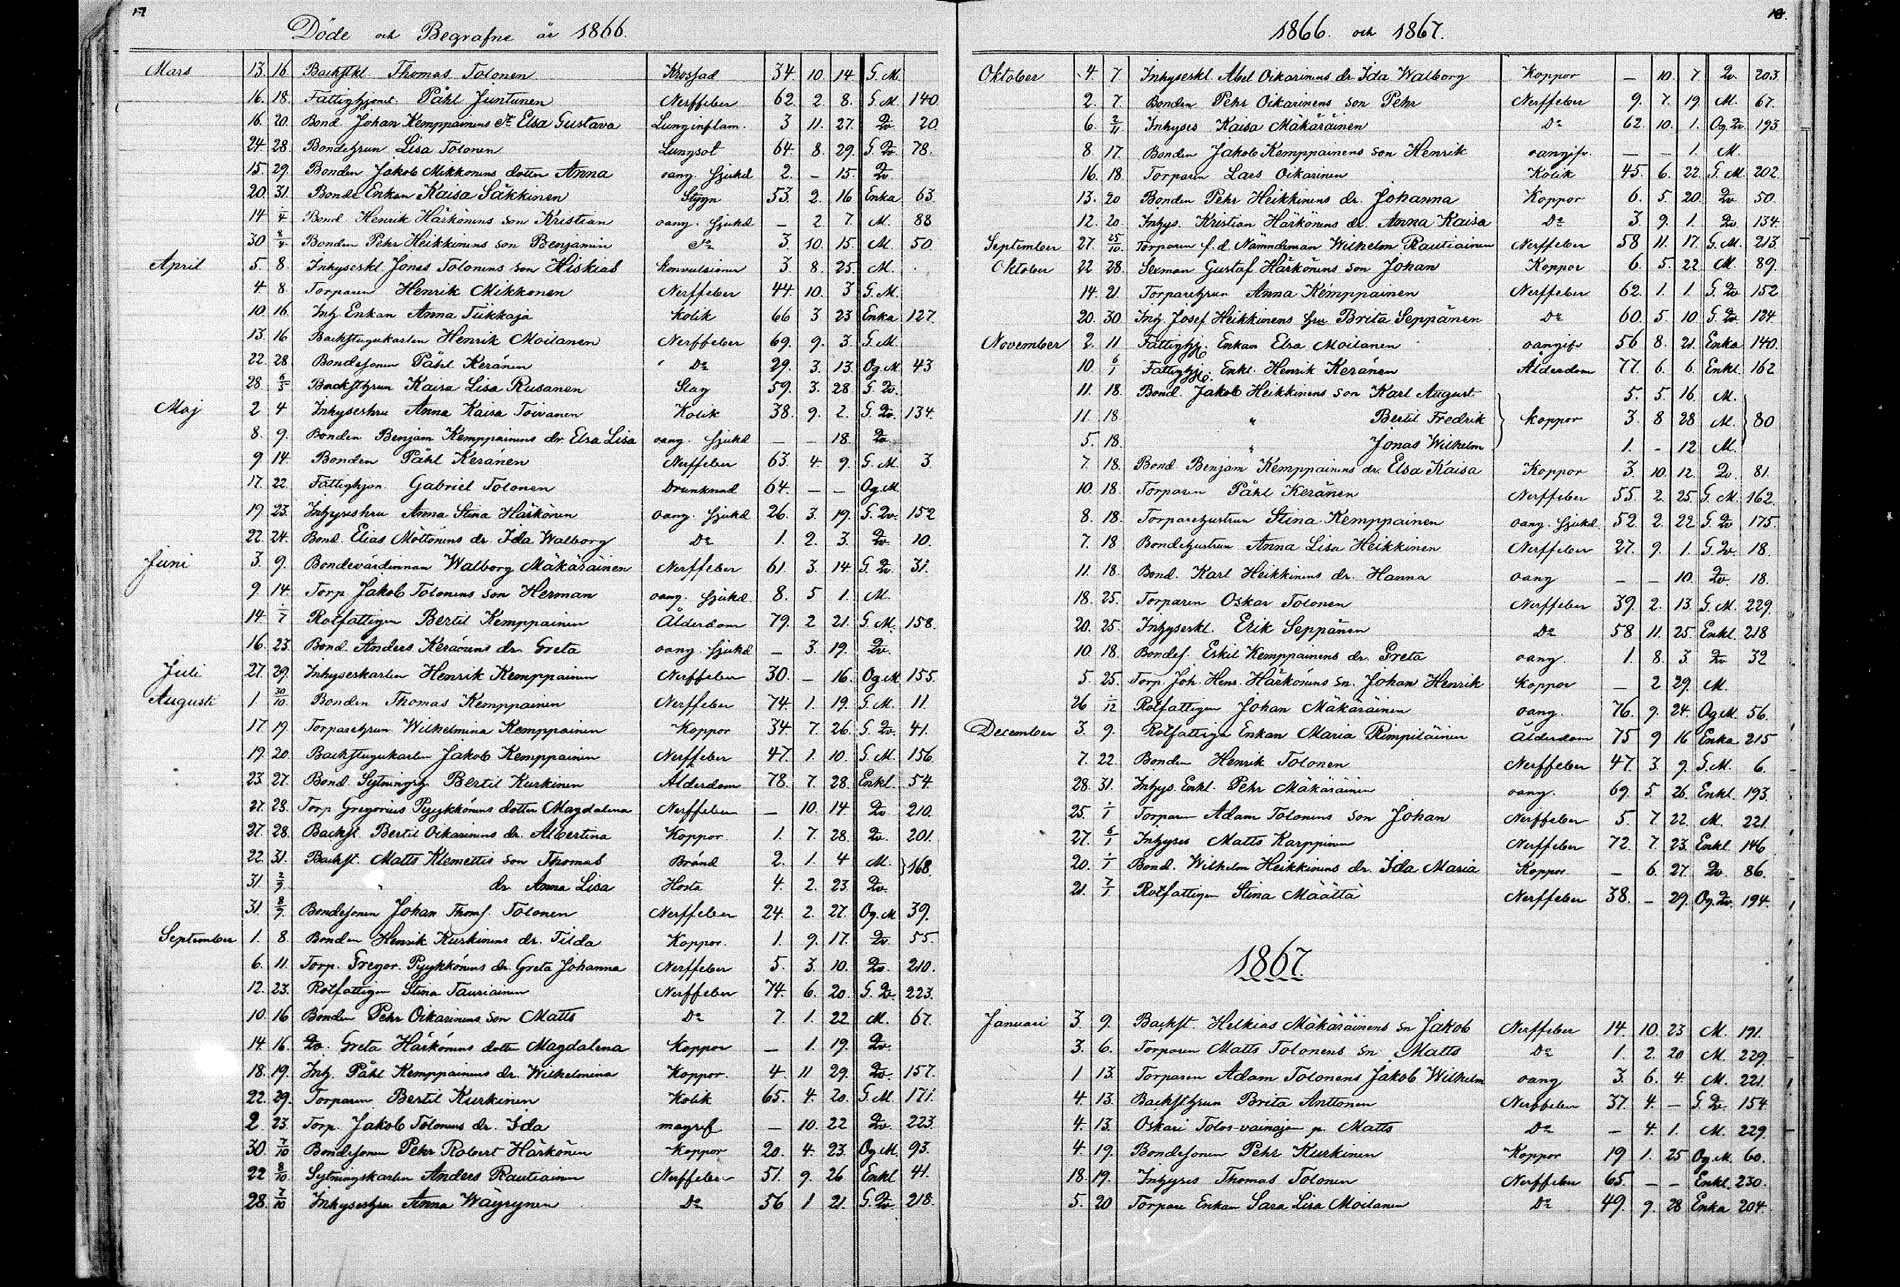 17
Döde och Begrafne år 1866.
Mars 13. 16. Backstkl. Thomas Tolonen Krossad 34. 10. 14. G.M.
16. 18. Fattighjonet Påhl Juntunen Nerffeber 62. 2. 8. G.M. 140.
16. 20. Bond. Johan Kemppainens dr Elsa Gustava Lunginflam. 3 11. 27. Qv. 20.
24. 28. Bondehrun Lisa Tolonen Lungsot 64. 8. 29. G.Qv. 78.
15. 29. Bonden Jakob Mikkonens dotter Anna oang. sjukd 2. – 15. Qv.
20. 31. Bonde Enkan Kaisa Säkkinen Stygn 53. 2. 16 Enka 63.
14 1/4 Bond. Henrik Härkönins son Kristian oang. sjukd – 2 7. M. 88
30. 2/4 Bonden Pehr Heikkinens son Benjamin do 3. 10. 15. M. 50.
April 5. 8. Inhyserkl. Jonas Tolonens son Hiskias konvulsioner 3 8. 25. M.
4 8. Torparen Henrik Mikkonen Nerffeber 44. 10. 3 G.M.
10. 16. Inh. Enkan Anna Tiikkaja Kolik 66 3 23 Enka 127.
13. 16 Backstugukarlen Henrik Moilanen Nerffeber 69. 9. 3. G.M.
22. 28 Bondesonen Påhl Keränen Do 29. 3. 13. Og.M. 43
28. 6/5 Backsthrun Kaisa Lisa Rusanen Slag 59. 3. 28 G.Qv.
Maj 2 4 Inhyseshru Anna Kaisa Toivanen Kolik 38. 9. 2. G.Qv. 134.
8. 9. Bonden Benjam Kemppainens dr Elsa Lisa oang. sjukd – – 18. Qv
9 14. Bonden Påhl Keränen Nerffeber 63. 4. 9. G.M. 3.
17. 22 Fattighjon. Gabriel Tolonen Drunknad 64. – – Og.M.
19 23. Inhyseshru Anna Stina Härkönen oang. sjukd 26. 3. 19. G.Qv. 152
22. 24. Bond. Elias Möttönins dr Ida Walborg Do 1. 2. 3. Qv. 10.
Juni 3. 9. Bondevärdinnan Walborg Mäkäräinen Nerffeber 61. 3 14 G.Qv. 31.
9 14. Torp. Jakob Tolonens son Herman oang. sjukd 8. 5 1. M.
14. 1/7 Rotfattigen Bertil Kemppainen Ålderdom 79. 2 21. G.M. 158.
16. 23. Bond. Anders Keränens dr Greta oang. sjukd – 3. 19. Qv.
Juli 27. 29. Inhyserkarlen Henrik Kemppainen Nerffeber 30. – 16. Og.M. 155.
Augusti 1 30/10 Bonden Thomas Kemppainen Nerffeber 74. 1. 19. G.M. 11.
17 19. Torparehrun Wilhelmina Kemppainen Koppor 34 7. 26. G.Qv. 41.
19. 20 Backstugukarlen Jakob Kemppainen Nerffeber 47. 1. 10. G.M. 156.
23. 27. Bond Sytningsg. Bertil Kurkinen Ålderdom 78. 7. 28. Enkl. 54.
27. 28. Torp. Gregorius Pyykkönins dotter Magdalena Nerffeber – 10. 14. Qv 210.
27. 28. Backst. Bertil Oikarinens dr. Albertina Koppor 1. 7. 28. Qv. 201.
22. 31. Backst. Matts Klemettis son Thomas Bränd 2. 1. 4 M. 168
31 2/9 " dr Anna Lisa Hosta 4. 2. 23 Qv.
31. 8/9 Bondesonen Johan Thoms. Tolonen Nerffeber 24. 2. 27. Og.M 39.
September 1. 8. Bonden Henrik Kurkinens dr. Tilda Koppor. 1. 9. 17. Qv. 55.
6. 11. Torp. Gregor. Pyykkönins dr. Greta Johanna Nerffeber 5. 3. 10. Qv. 210.
12. 23. Rotfattigen Stina Tauriainen Nerffeber 74. 6. 20. G.Qv. 223.
10. 16 Bonden Pehr Oikarinens son Matts Do 7 1. 22 M. 67.
14. 16. Qv. Greta Härkönins dotter Magdalena Koppor – 1. 19. Qv.
18. 19. Inh. Påhl Kemppainens dr. Wilhelmina Koppor. 4. 11 29. Qv. 157.
22. 29. Torparen Bertil Kurkinen Kolik 65. 4. 20. G.M. 171.
2. 23. Torp. Jakob Tolonens dr. Ida magref – 10. 22 Qv. 223.
30. 7/10 Bondesonen Pehr Robert Härkönen Koppor 20. 4. 23. Og.M. 93.
22 8/10 Sytningskarlen Anders Rautiainen Nerffeber 51. 9. 26 Enkl 41.
28. 7/10 Inhyseshru Anna Wäyrynen Do 56 1 21. G.Qv. 218.
18.
1866. och 1867.
Oktober 4. 7. Inhyserkl. Abel Oikarinens dr. Ida Walborg Koppor – 10. 7. Qv. 203
2. 7. Bonden Pehr Oikarinens son Pehr Nerffeber 9. 7. 19. M. 67.
6. 2/11 Inhyses Kaisa Mäkäräinen Do 62. 10. 1. Og.Qv. 193
8. 17. Bonden Jakob Kemppainens son Henrik oangifv. – – 1. M.
16. 18. Torparen Lars Oikarinen Kolik 45. 6. 22. G.M. 202
13. 20 Bonden Pehr Heikkinens dr. Johanna Koppor 6. 5. 20. Qv 50.
12. 20. Inhys. Kristian Härkönens dr. Anna Kaisa Do 3. 9. 1. Qv 134.
September 27. 25/10 Torparen f.d. Namndeman Wilhelm Rautiainen Nerffeber 58 11. 17. G.M. 213.
Oktober 22. 28. Sexman Gustaf Härkönins son Johan Koppor 6. 5. 22 M. 89.
14. 21. Torparehrun Anna Kemppainen Nerffeber 62. 1. 1. G.Qv 152
20. 30. Inh. Josef Heikkinens hru Brita Seppänen Do 60. 5. 10 G.Qv 124.
November 2. 11 Fattighj. Enkan Elsa Moilanen oangifv 56 8. 21. Enka 140.
10. 6/1 Fattighj. Enkl. Henrik Keränen Ålderdom 77. 6. 6. Enkl. 162
11. 18. Bond. Jakob Heikkinens son Karl August 5. 5. 16. M.
11. 18 " Bertil Fredrik Koppor 3. 8 28 M. 80
5. 18. " Jonas Wilhelm 1. – 12 M.
7. 18. Bond Benjam Kemppainens dr. Elsa Kaisa Koppor 3. 10. 12. Qv. 81.
10. 18. Torparen Påhl Keränen Nerffeber 55. 2. 25. G.M. 162.
8. 18. Torparehustrun Stina Kemppainen oang. sjukd. 52. 2. 22 G.Qv 175.
7. 18 Bondehustrun Anna Lisa Heikkinen Nerffeber 27. 9. 1. G.Qv. 18.
11. 18. Bond. Karl Heikkinens dr. Hanna oang – – 10. Qv. 18.
18. 25. Torparen Oskar Tolonen Nerffeber 39. 2. 13. G.M. 229.
20. 25. Inhyserkl. Erik Seppänen Do 58 11. 25. Enkl. 218
10. 18. Bondes. Eskil Kemppainens dr. Greta oang. 1. 8. 3. Qv 32
5. 25. Torp. Joh. Henr. Härkönins sn. Johan Henrik Koppor – 2 29. M.
26 1/12 Rotfattigen Johan Mäkäräinen oang. 76. 9. 24. Og.M. 56.
December 3. 9. Rotfattige Enkan Maria Rimpiläinen Ålderdom 75 9 16 Enka 215
7. 22 Bonden Henrik Tolonen Nerffeber 47. 3 9. G.M. 6.
28. 31. Inhys. Enkl. Pehr Mäkäräinen oang. 69 5. 26. Enkl. 193.
25. 1/1 Torparen Adam Tolonens son Johan Nerffeber 5. 7 22. M. 221.
27. 6/1 Inhyses Matts Karppinen Nerffeber 72. 7. 23. Enkl. 146
20. 1/1 Bond. Wilhelm Heikkinens dr. Ida Maria Koppor – 6. 27. Qv 86.
21. 7/1 Rotfattigen Stina Määttä Nerffeber 38. – 29. Og.Qv. 194.
1867.
Januari 3. 9. Backst. Helkias Mäkäräinens sn Jakob Nerffeber 14. 10. 23 M. 191.
3. 6. Torparen Matts Tolonens sn Matts Do 1. 2. 20 M. 229.
1 13. Torparen Adam Tolonens Jakob Wilhelm oang 3. 6. 4. M. 221.
4. 13. Backsthrun Brita Anttonen Nerffeber 37. 4. – G.Qv. 154
4. 13. Oskari Tolos-vainajan p. Matts Do – 4. 1. M. 229.
4. 19. Bondesonen Pehr Kurkinen Koppor 19 1. 25 Og.M. 60.
18. 19. Inhyses Thomas Tolonen Nerffeber 65. – – Enkl. 230.
5. 20 Torpare Enkan Sara Lisa Moilanen Do 49. 9. 28 Enka 204.